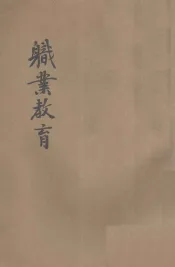 職業教育